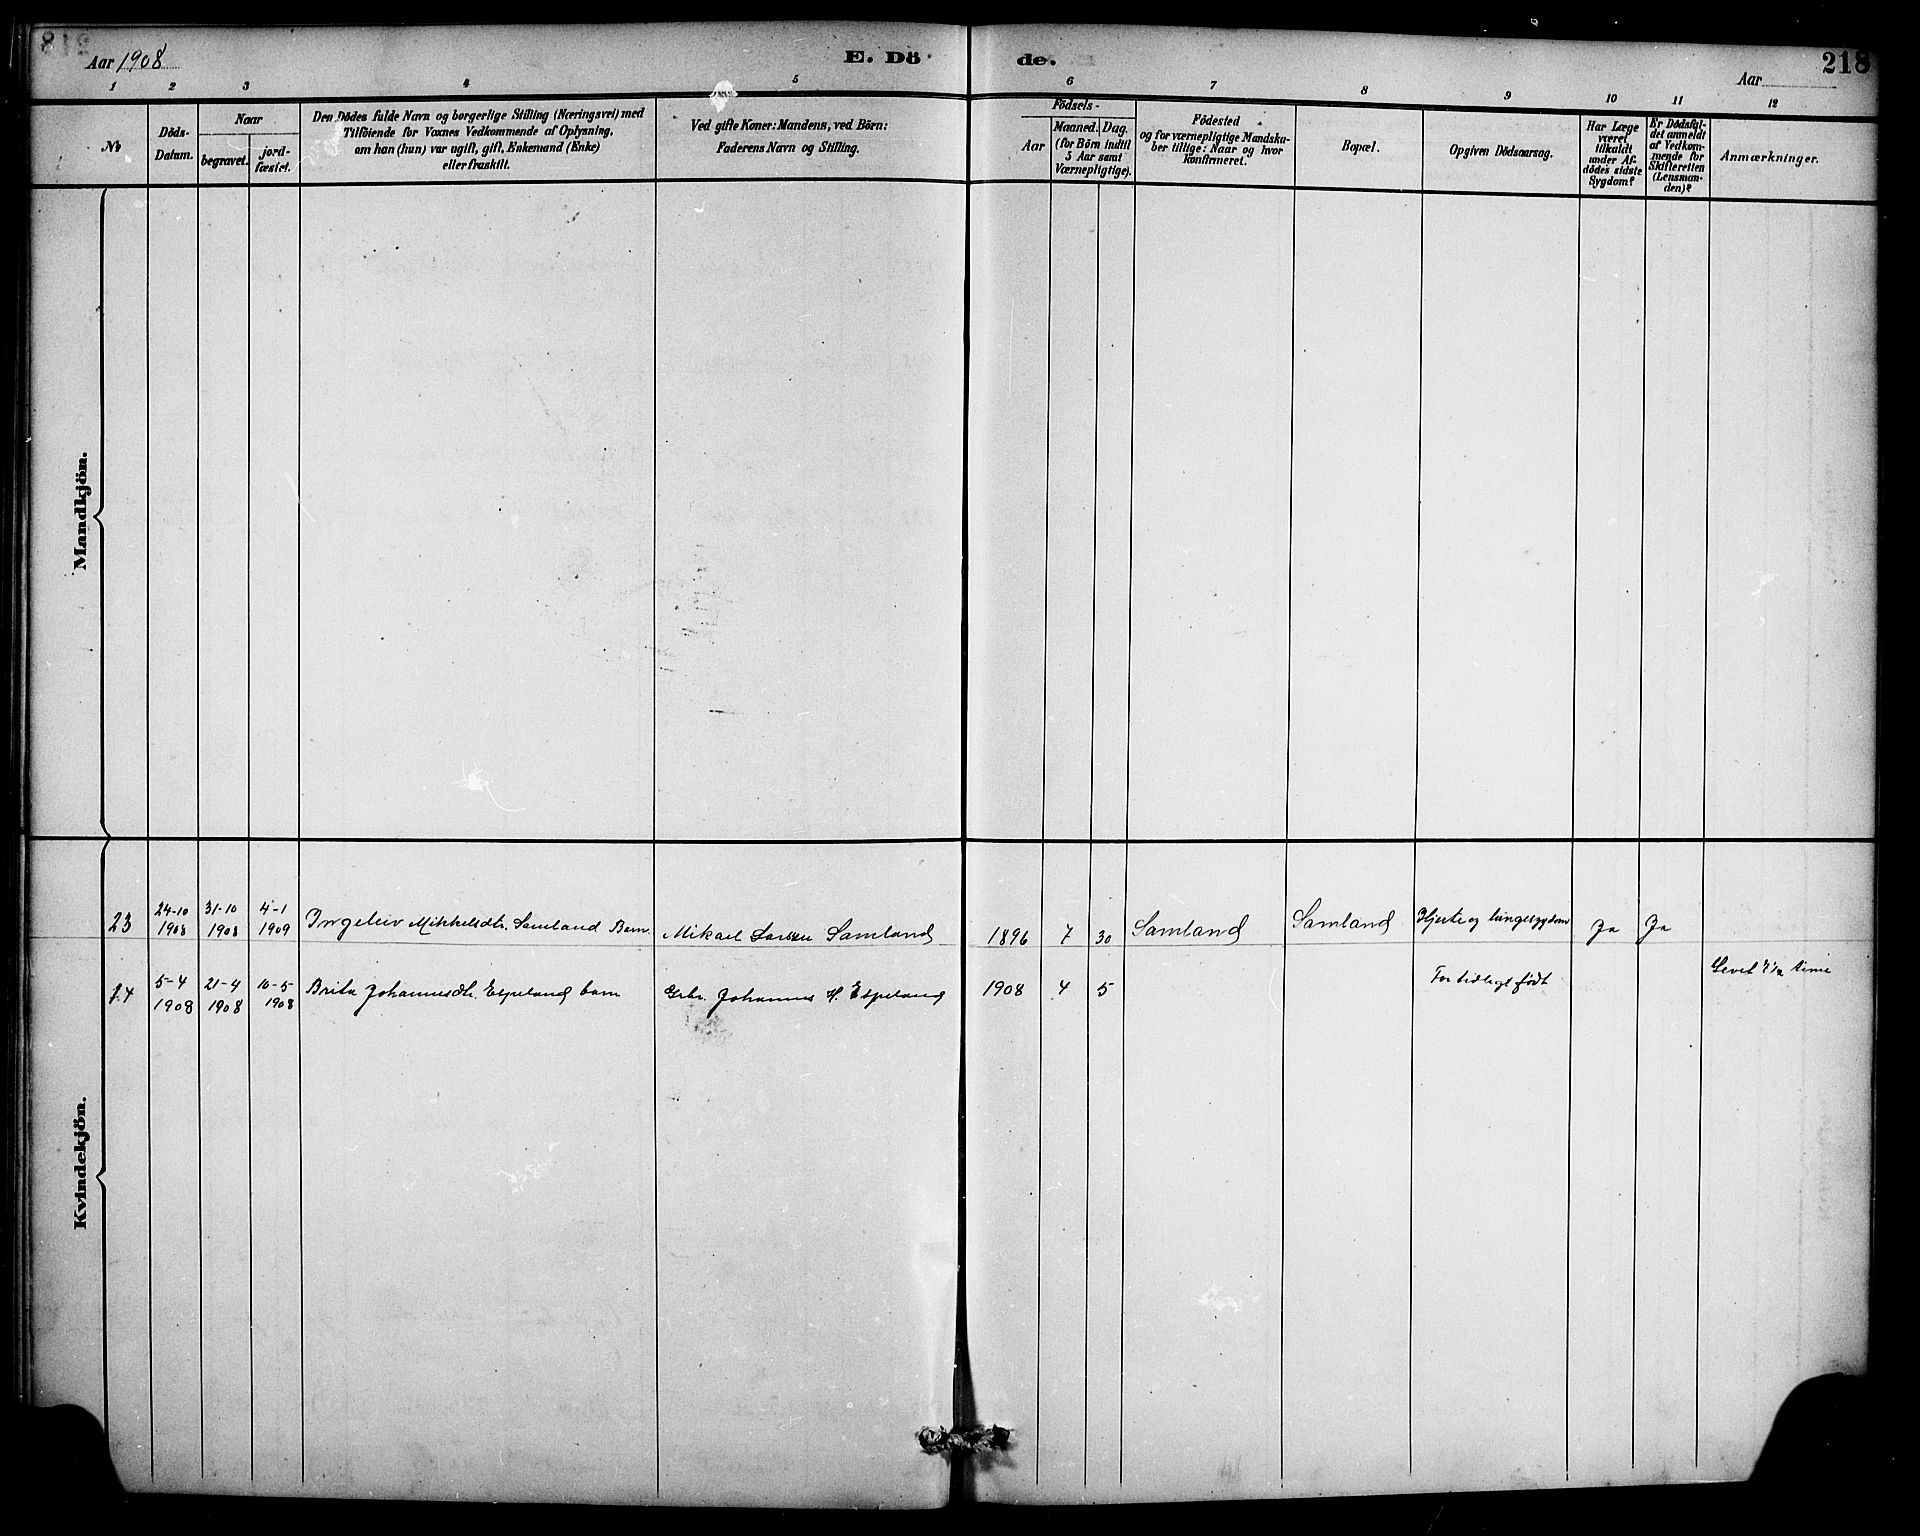 218
Aar 1908
E. Dö
de.
Aar
1 2 3 4 5 6 7 8 9 10 11 12
No
Döds-
Datum.
Naar
begravet.
jord-
fæstet.
Den Dödes fulde Navn og borgerlige Stilling (Næringsvei) med
Tilföiende for Voxnes Vedkommende af Oplysning,
om han (hun) var ugift, gift, Enkemand (Enke)
eller fraskilt.
Ved gifte Koner: Mandens, ved Börn:
Faderens Navn og Stilling.
Födsels-
Aar
Maaned. Dag.
(for Börn indtil
5 Aar samt
Værnepligtige).
Födested
og for værnepligtige Mandska-
ber tillige: Naar og hvor
konfirmeret.
Bopæl.
Opgiven Dödsaarsag.
Har Læge
været
tilkaldt
under Af-
dödes sidste
Sygdom?
Er Dödsfal-
det anmeldt
af Vedkom-
mende for
Skifteretten
(Lensman-
den)?
Anmærkninger.
Mandkjön.
Kvindekjön.
23 24-10 1908 31-10 1908 4-1 1909 Ingeleiv Mikkelsdtr. Samland Barn Mikael Larsen Samland 1896 7 30 Samland Samland Hjerte og lungesygdom Ja Ja
5-4 1908 21-4 1908 10-5 1908 Brita Johannesdtr. Espeland barn Grbr. Johannes H. Espeland 1908 4 5 For tidligt født Levet time